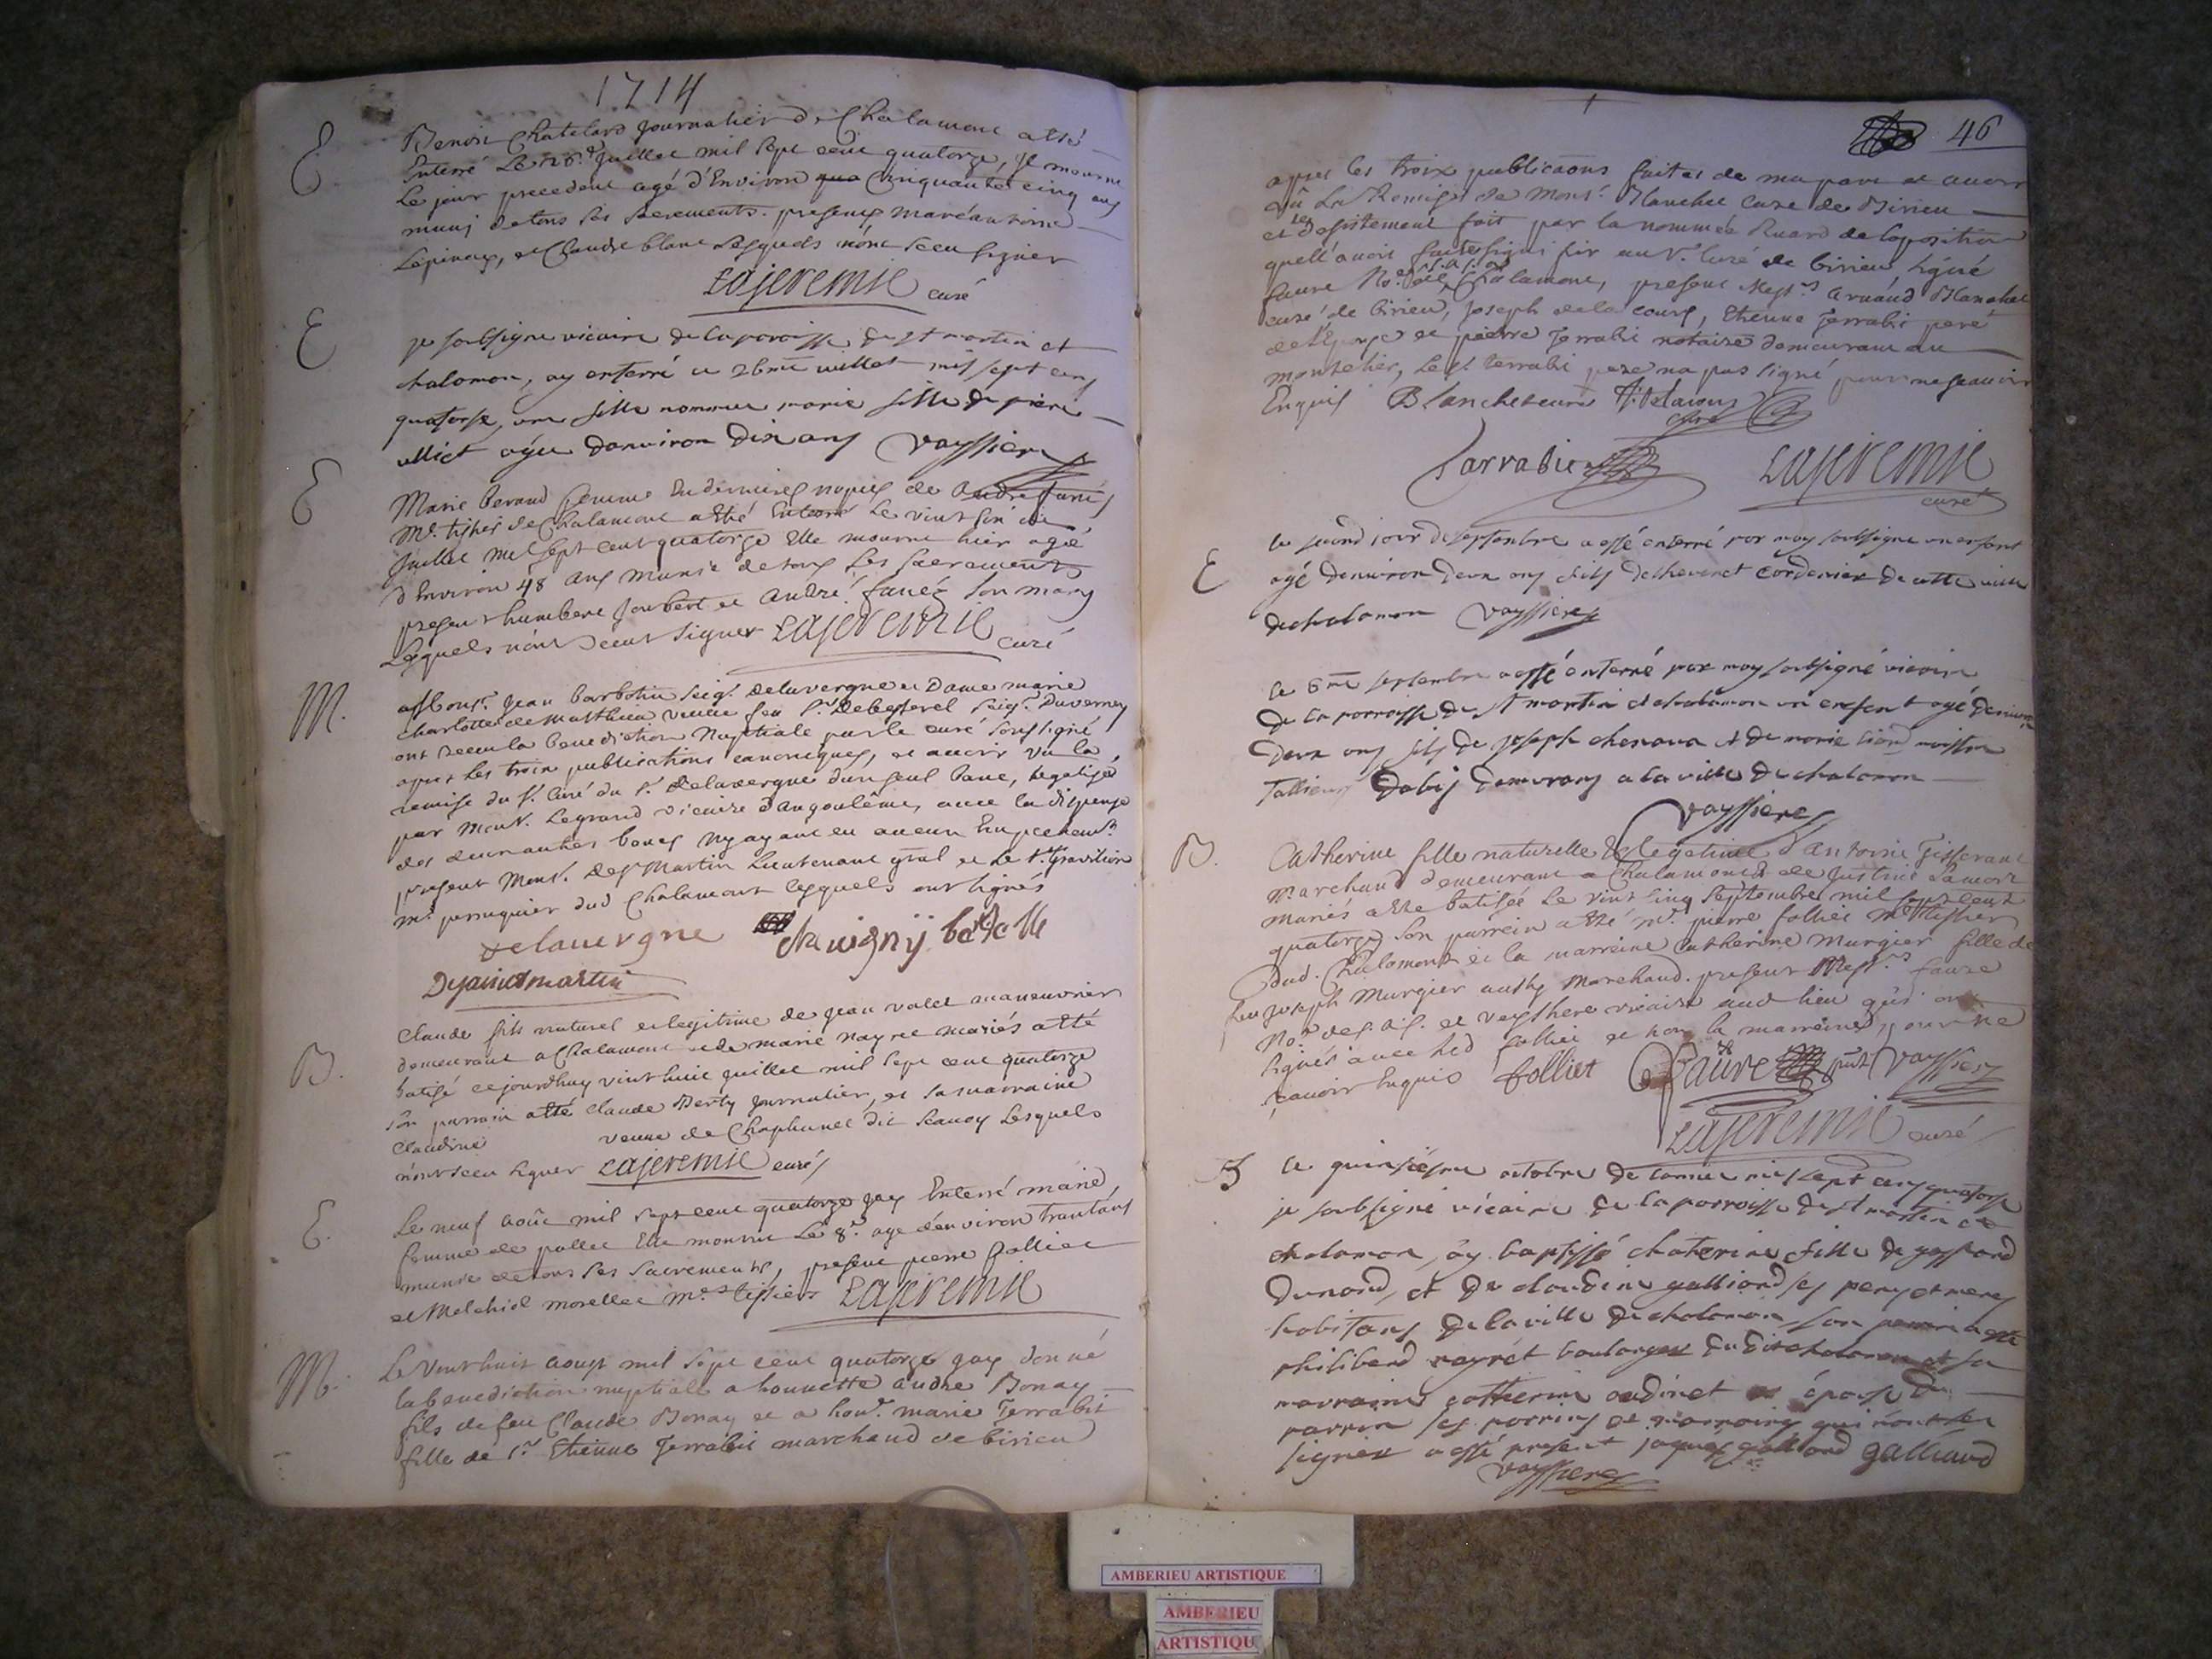 1714
E
Benoist Chatelard Journalier de Chalamont a Esté
Enterré Le 26.e Juillet mil sept cent quatorze, Il mourut
Le jour precedent agé d'Environ qua Cinquante cinq ans
muni de tous ses sacrements. presents
et Claude blanc Lesquels n'ont sceu signer
Lajeremie curé
E
je soubsigne vicaire de la paroisse de st martin et
chalamon, ay enterré ce 26me juillet mil sept cens
quatorse, une fille nommee marie fille de piere
agee danviron dix ans Vayssiere
E
Marie beraud femme En dernieres nopces de
Me. tissier de Chalamont a Esté Enterré Le vint
Juillet mil sept cent quatorze Elle mourut hier agée
d'Environ 48 ans munie de tous Les sacrements
present humbert Joubert et André son mary
Lesquels n'ont sceut signer Lajeremie curé
M.
Jean barbotin seigr. delavergne et Dame marie
Charlotte de veuve feu sr. seigr. Duverney
ont receu la benediction Nuptiale par le curé soussigné
apres Les trois publications canoniques, et avoir vu la
remise du sr. curé du sr. Delavergne dun seul banc, legalisé
par Monsr. Legrand vicaire d'angoulême, avec la dispense
des deux autres bancs Ny ayant eu aucun Empechemt.
present Monsr. De st Martin Lieutenant gnal et Le sr.
me. perruquier dud Chalamont lesquels ont signés
delavergne chauvigny
Dysainctmartin
B.
Claude fils naturel et legitime de jean valet maneuvrier
demeurant a Chalamont et de marie nayret mariés a esté
batisé cejourdhuy vint huit juillet mil sept cent quatorze
son parrain a esté claude Berty journalier, et sa marraine
Claudine veuve de Chaphunet dit Lesquels
n'ont sceu signer Lajeremie curé
E.
Le neuf août mil sept cent quatorze jay Enterré marie,
femme de pollet Elle mourut Le 8e. age d'environ trantans
munie de tous ses sacrements, present pierre folliet
et Melchiol morellet mes. tissiers Lajeremie
M.
Le vint huit aoust mil sept cent quatorze jay donné
la benediction nuptiale a honnette andre Bonay
fils de feu Claude Bonay et a honn. marie Terrabit
fille de sr. Etienne Terrabit marchand de birieu
46
apres les trois publicaons faites de ma part et avoir
vû La Remise de Monsr. Blanchet Curé de Birieu
et le desistement fait par la nommée Ruard de loposition
quell' avoit
faure No. Chalamont, present Messrs arnaud Blanchet
curé de birieu, joseph dela cour, Etienne Terrabit peré
de l'Epouse et pierre Terrabit notaire demeurant au
montelier, Led terrabit pere na pas signé pour ne scavoir
Enquis Blanchet curé Delacour
Tarrabit Lajeremie
curé
E
le second jour de septembre a esté enterré par moy soubsigne un enfant
agé denviron deux ans fils de cordonier de cette ville
de chalamon Vayssiere
le 6me septembre a esté enterré par moy soubsigné vicaire
de la parroisse de st martin et chalamon un enfent agé denviron
deux ans fils de joseph chenava et de marie maistre
Tallieur dabis demurans a la ville de chalamon
Vayssiere
B.
Catherine fille naturelle & legitime d'antoine Tisserant
marchand demeurant a Chalamont et de Justine Lamort
mariés a été batisée le vint cinq septembre mil sept cent
quatorze son parrein a esté mr. pierre folliet me tissier
dud. Chalamont et la marreine Catherine Murgier fille de
feu joseph Murgier aussy marchand. present Messrs faure
Nore de s. a. s. et veyssiere vicaire aud lieu qui ont
signés avec led folliet et non la marreine pour ne
scavoir Enquis folliet faure pnt Vayssiere
Lajeremie curé
B
le quinsiesme octobre de lannee mil sept cens quatorse
je soubsigné vicaire de la parroisse de st martin et
chalamon, ay baptissé chaterine fille de gaspard
Dunand, et de claudine galliard ses pere et mere
habitans de la ville de chalamon, son parrin a esté
philiberd nayrét boulanger du dit chalamon et sa
marraine catherine oudinet épouse du
parrin les parrins et marraines qui n'ont sceu
signer a esté present jaques galliard galliaud
Vayssiere
AMBERIEU ARTISTIQUE
AMBERIEU
ARTISTIQU